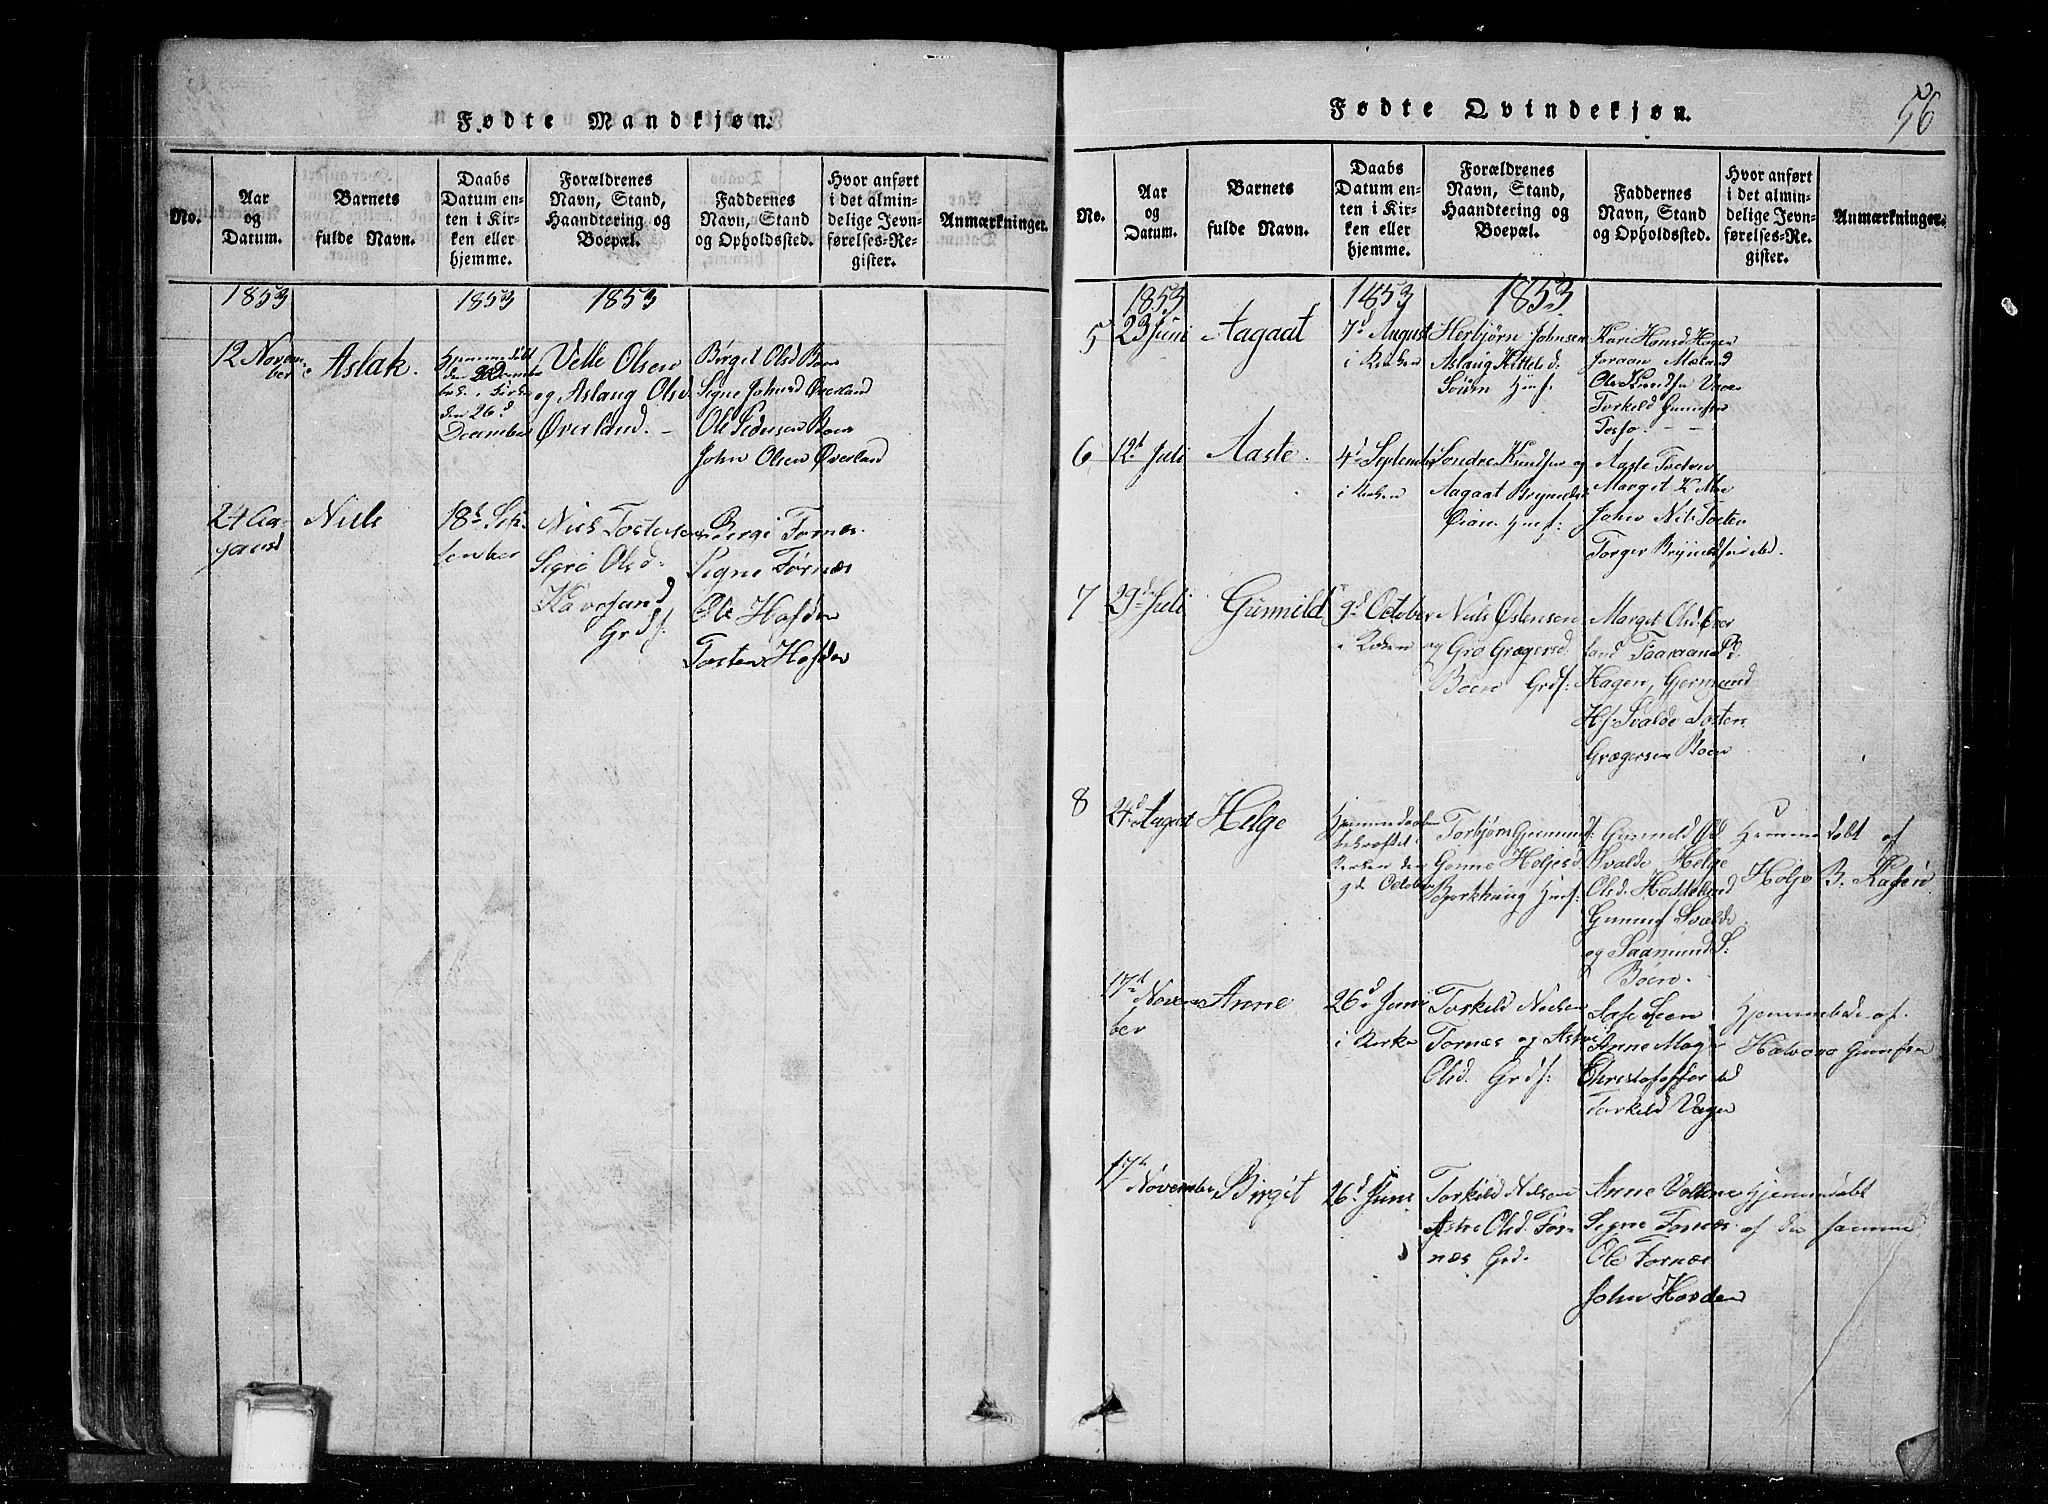 Fødte Mandkjøn.
No.
Aar
og
Datum.
Barnets
fulde Navn.
Daabs
Datum en-
ten i Kir-
ken eller
hjemme.
Forældrenes
Navn, Stand,
Haandtering og
Boepæl.
Faddernes
Navn, Stand
og Opholdssted.
Hvor anført
i det almin-
delige Jevn-
førelses-Re-
gister.
Anmærkninger.
1853
1853
1853
12 Novem-
ber
Aslak.
den
den 26d
December
Velle Olsen
og Aslaug Olsd.
Øverland. -
Birgit Olsd Boen
Signe Johnsd Øverland
Ole Pedersen Boen
John Olsen Øverland
24 Au-
gust
Niels
18d Sep-
tember
Niels Tostensen
Sigrø Olsd.
Grdf.
Bergi Fornes.
Signe Førnæs
Ole Hafden
Tosten Hafden
Fødte Qvindekjøn.
56
No.
Aar
og
Datum.
Barnets
fulde Navn.
Daabs
Datum en-
ten i Kir-
ken eller
hjemme.
Forældrenes
Navn, Stand,
Haandtering og
Boepæl.
Faddernes
Navn, Stand
og Opholdssted.
Hvor anført
i det almin-
delige Jevn-
førelses-Re-
gister.
Anmærkninger.
1853
1853
1853
5
23 Juni
Aagaat
7d August
i Kirken
Herbjørn Johnsen
Aslaug Kittelsd.
Huusf.
Kari Hansd Hagen
Joraan Mæland
Ole Knudsen
Torkeld Gunufsen
6
12d Juli
Aaste.
4d September
i Kirken
Sondre Knudsen og
Aagaat Brynildsd
Øian Huusf:
Aaste
Margit K. Moe
John Nils Tosten
Torger Brynildsen
7
29d Juli
Gunnild
9d October
i Kirken
Niels Østensen
og Gro Grægersd.
Boen Grdf:
Margit Olsd. Over
land Taaraand Pd.
Hagen, Gjermund
Hf: Svalde Tosten
Grægersen Boen
8
24d August
Helge
Kirken den
9de October
Torbjørn Gunnufs.
Gonne Holjesd
Bjorkhaug Huusf:
Gunnild Od
Svalde Helge
Olsd.
Gunnuf Svalde
og Saamund S:
Boen.
Hjemmedøbt af
Holje B. Hagen
17d
Novem-
ber
Anne
26d Juni
i Kirke
Torkeld Nielsen
Tornæs og Astrie
Olsd. Grdf:
Anne
Torkeld
Hjemmedøbt af.
Halvord Gunufsen
17d
November
Birgit
26d Juni
Torkeld Nielsen
Astrie Olsd. For-
næs Grd.
Anne
Signe Fornæs
Ole Fornæs
John Hovden
Hjemmdøbt
af den samme